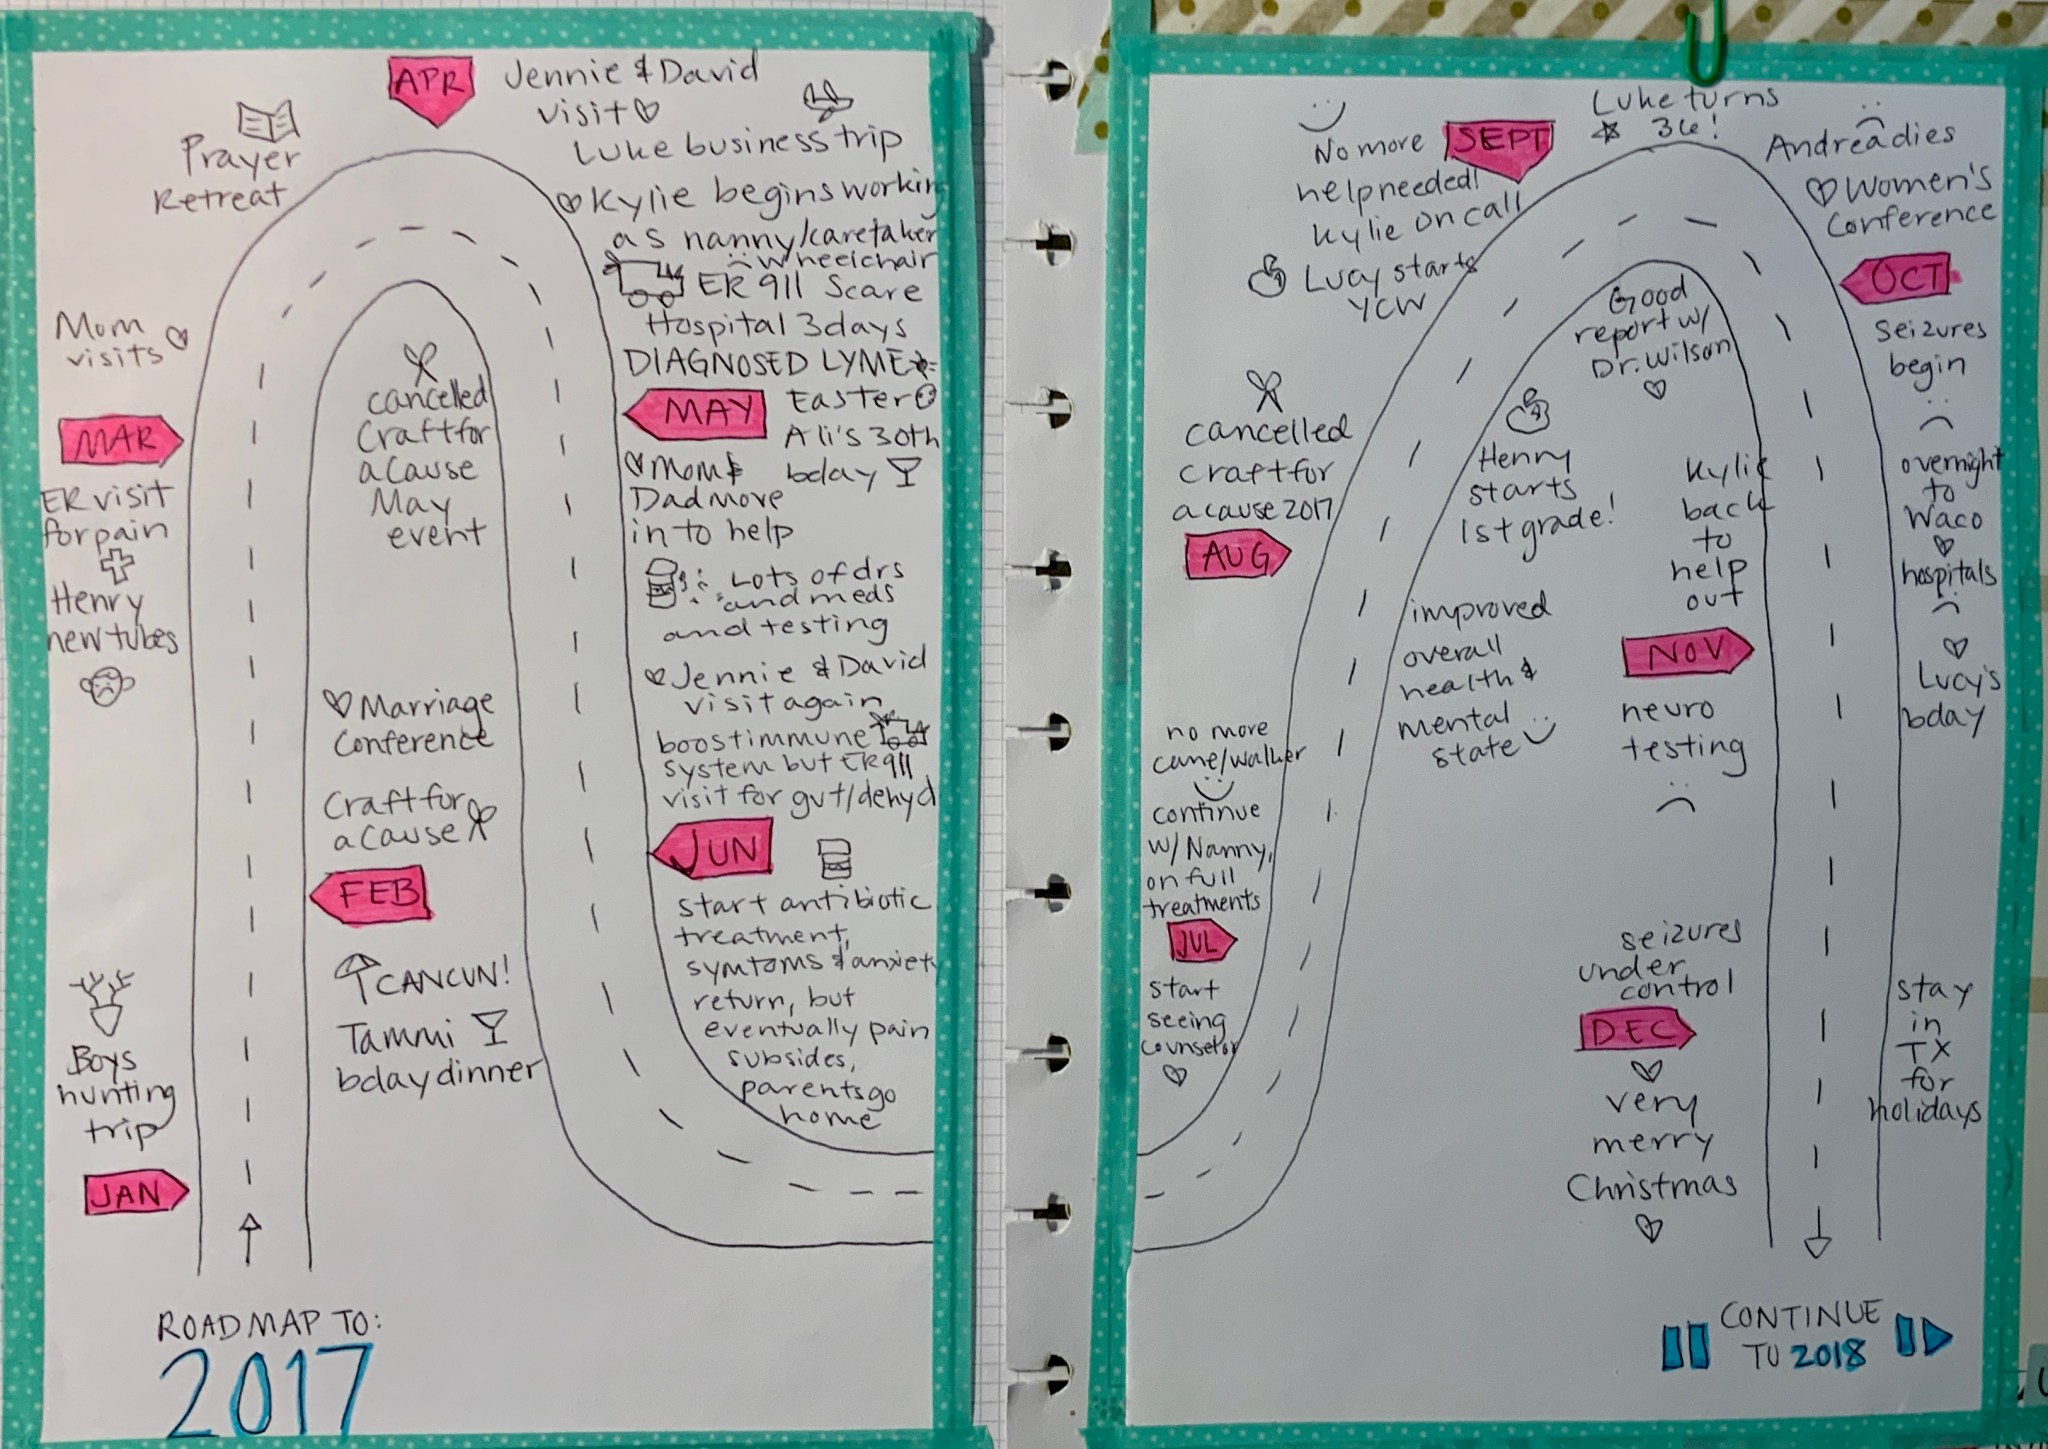 ROADMAP TO:
2017
JAN
Boys
hunting
trip
Tammi
bday dinner
CANCUN!
FEB
Craft for
a cause
Marriage
Conference
Henry
new tubes
ER visit
for pain
MAR
cancelled
Craft for
a cause
May
event
Mom
visits
Prayer
Retreat
APR
Jennie & David
visit
Luke business trip
Kylie begins working
as nanny/caretaker
wheelchair
ER 911 Scare
Hospital 3 days
DIAGNOSED LYME
Easter
Ali's 30th
bday
MAY
Mom &
Dad move
in to help
Lots of drs
and meds
and testing
Jennie & David
visit again
boost immune
system but ER 911
visit for gut/dehyd
JUN
start antibiotic
treatment,
symtoms & anxiety
return, but
eventually pain
subsides,
parents go
home
start
seeing
counselor
JUL
continue
w/ Nanny,
on full
treatments
no more
cane/walker
improved
overall
health &
mental
state
AUG
cancelled
craft for
a cause 2017
Henry
starts
1st grade!
Lucy starts
YCW
No more
help needed!
Kylie on call
SEPT
Luke turns
36!
Good
report w/
Dr. Wilson
Andrea dies
Women's
Conference
OCT
seizures
begin
overnight
to
Waco
hospitals
Lucy's
bday
Kylie
back
to
help
out
NOV
neuro
testing
seizures
under
control
DEC
very
merry
Christmas
stay
in
TX
for
holidays
CONTINUE
TO 2018